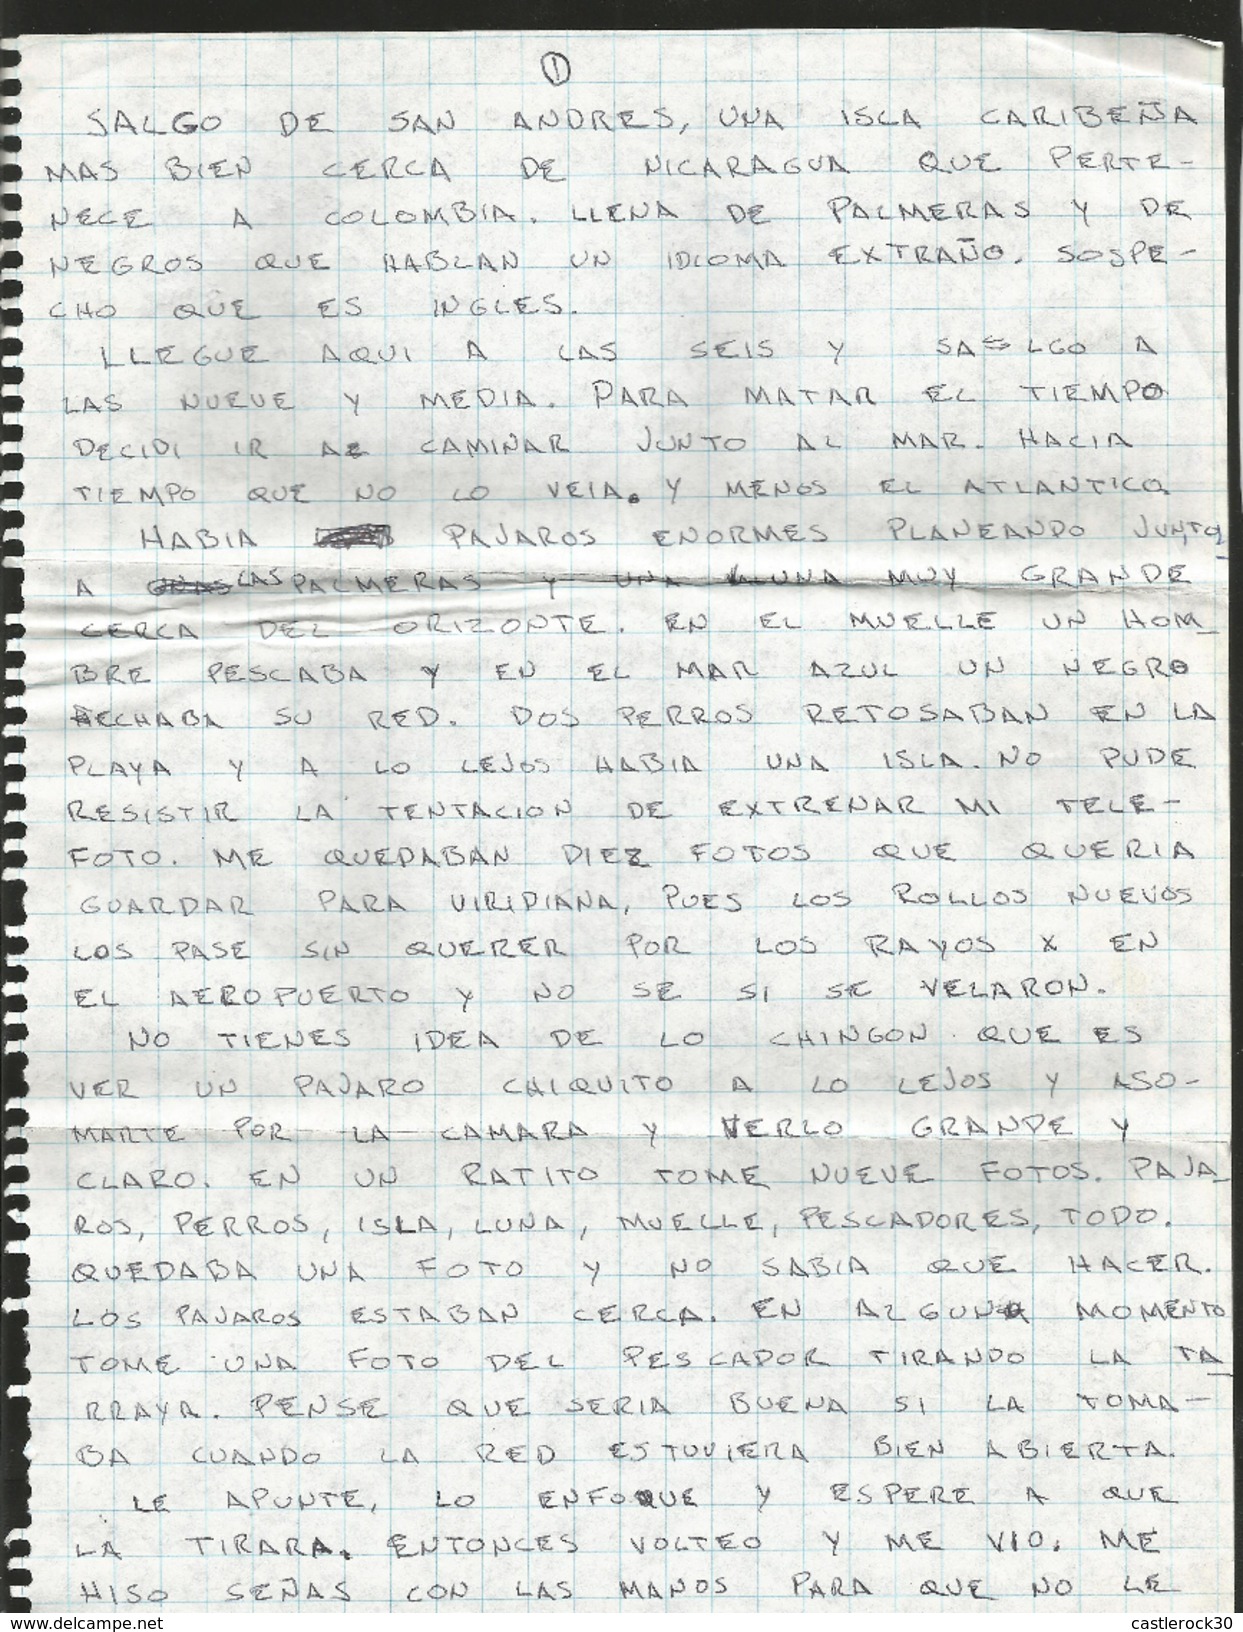 ①
SALGO DE SAN ANDRES, UNA ISLA CARIBEÑA
MAS BIEN CERCA DE NICARAGUA QUE PERTE-
NECE A COLOMBIA. LLENA DE PALMERAS Y DE
NEGROS QUE HABLAN UN IDIOMA EXTRAÑO. SOSPE-
CHO QUE ES INGLES.
LLEGUE AQUI A LAS SEIS Y SALGO A
LAS NUEVE Y MEDIA. PARA MATAR EL TIEMPO
DECIDI IR A CAMINAR JUNTO AL MAR. HACIA
TIEMPO QUE NO LO VEIA. Y MENOS EL ATLANTICO.
HABIA PAJAROS ENORMES PLANEANDO JUNTO
A LAS PALMERAS Y UNA LUNA MUY GRANDE
CERCA DEL ORIZONTE. EN EL MUELLE UN HOM-
BRE PESCABA Y EN EL MAR AZUL UN NEGRO
ECHABA SU RED. DOS PERROS RETOSABAN EN LA
PLAYA Y A LO LEJOS HABIA UNA ISLA. NO PUDE
RESISTIR LA TENTACION DE EXTRENAR MI TELE-
FOTO. ME QUEDABAN DIEZ FOTOS QUE QUERIA
GUARDAR PARA VIRIDIANA, PUES LOS ROLLOS NUEVOS
LOS PASE SIN QUERER POR LOS RAYOS X EN
EL AEROPUERTO Y NO SE SI SE VELARON.
NO TIENES IDEA DE LO CHINGON QUE ES
VER UN PAJARO CHIQUITO A LO LEJOS Y ASO-
MARTE POR LA CAMARA Y VERLO GRANDE Y
CLARO. EN UN RATITO TOME NUEVE FOTOS. PAJA-
ROS, PERROS, ISLA, LUNA, MUELLE, PESCADORES, TODO.
QUEDABA UNA FOTO Y NO SABIA QUE HACER.
LOS PAJAROS ESTABAN CERCA. EN ALGUN MOMENTO
TOME UNA FOTO DEL PESCADOR TIRANDO LA TA-
RRAYA. PENSE QUE SERIA BUENA SI LA TOMA-
BA CUANDO LA RED ESTUVIERA BIEN ABIERTA.
LE APUNTE, LO ENFOQUE Y ESPERE A QUE
LA TIRARA. ENTONCES VOLTEO Y ME VIO. ME
HISO SEÑAS CON LAS MANOS PARA QUE NO LE
www.delcampe.net
castlerock30